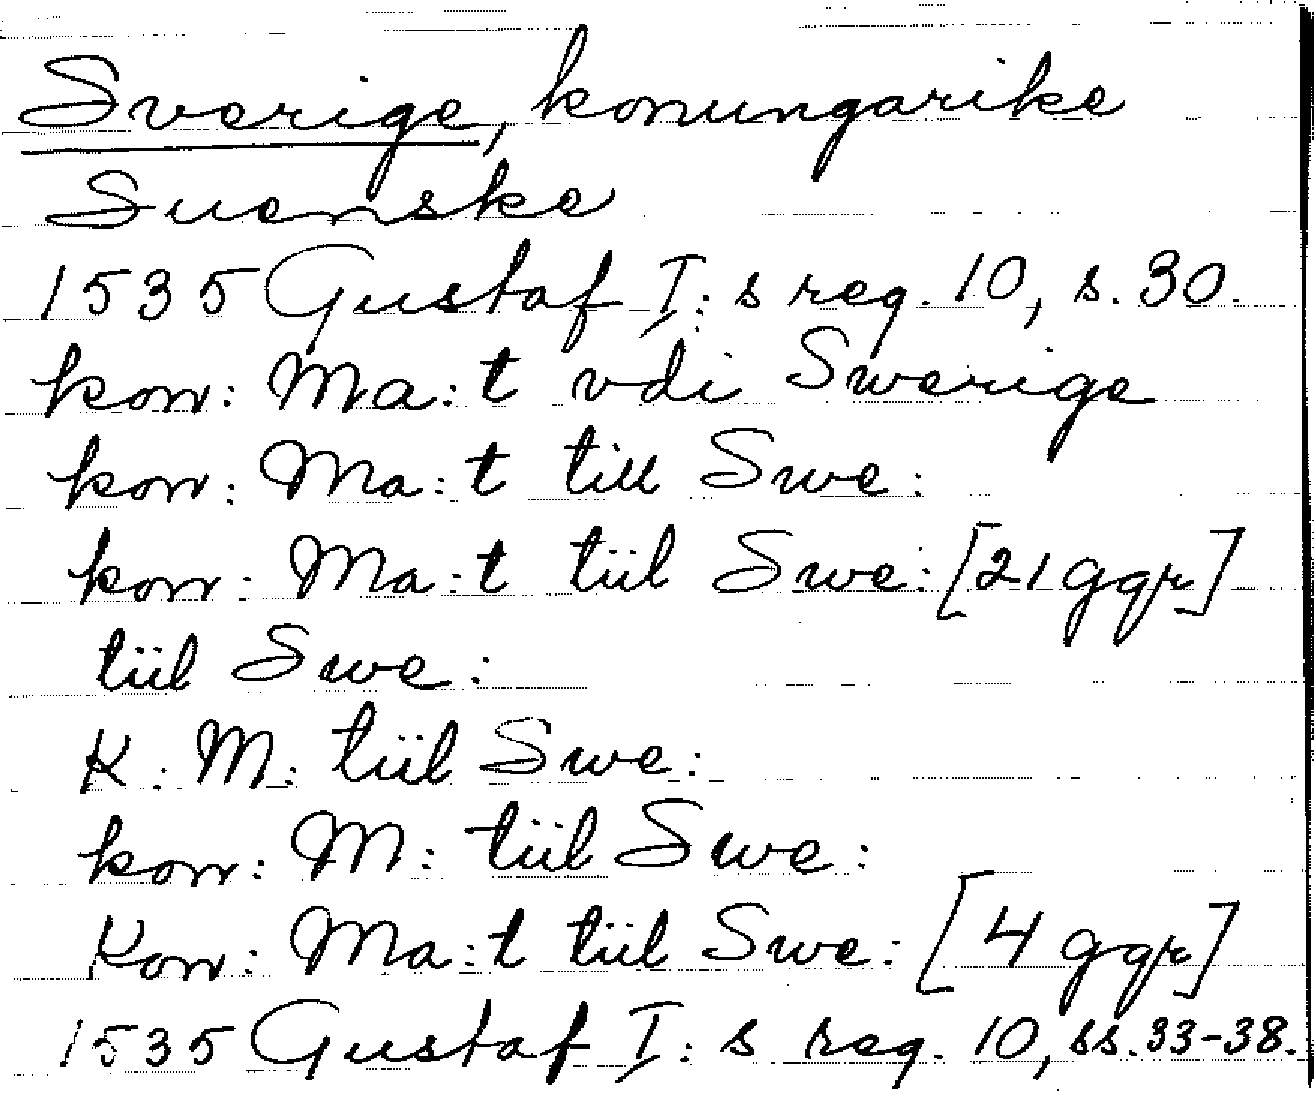 Sverige, konungarike
Suenske
1535 Gustaf I:s reg. 10, s. 30.
kon: Ma:t vdi Swerige
kon: Ma:t till Swe:
kon: Ma:t tiil Swe: [21 ggr]
tiil Swe:
K: M: tiil Swe:
kon: M: tiil Swe:
Kon: Ma:t tiil Swe: [4 ggr]
1535 Gustaf I:s reg. 10, ss. 33-38.